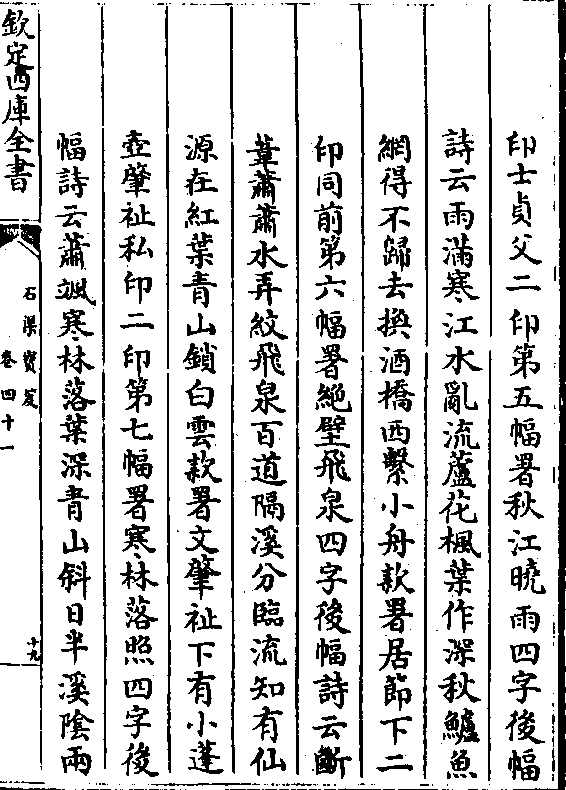 印士貞父二印第五幅署秋江曉雨四字後幅
詩云雨滿寒江水亂流蘆花楓葉作深秋鱸魚
網得不歸去換酒橋西繫小舟款署居節下二
印同前第六幅署絶壁飛泉四字後幅詩云斷
葦蕭蕭水弄紋飛泉百道隔溪分臨流知有仙
源在紅葉青山鎖白雲款署文肇祉下有小蓬
壺肇祉私印二印第七幅署寒林落照四字後
幅詩云蕭颯寒林落葉深青山斜日半溪陰兩
欽定四庫全書
石渠寶笈
卷四十一
十九